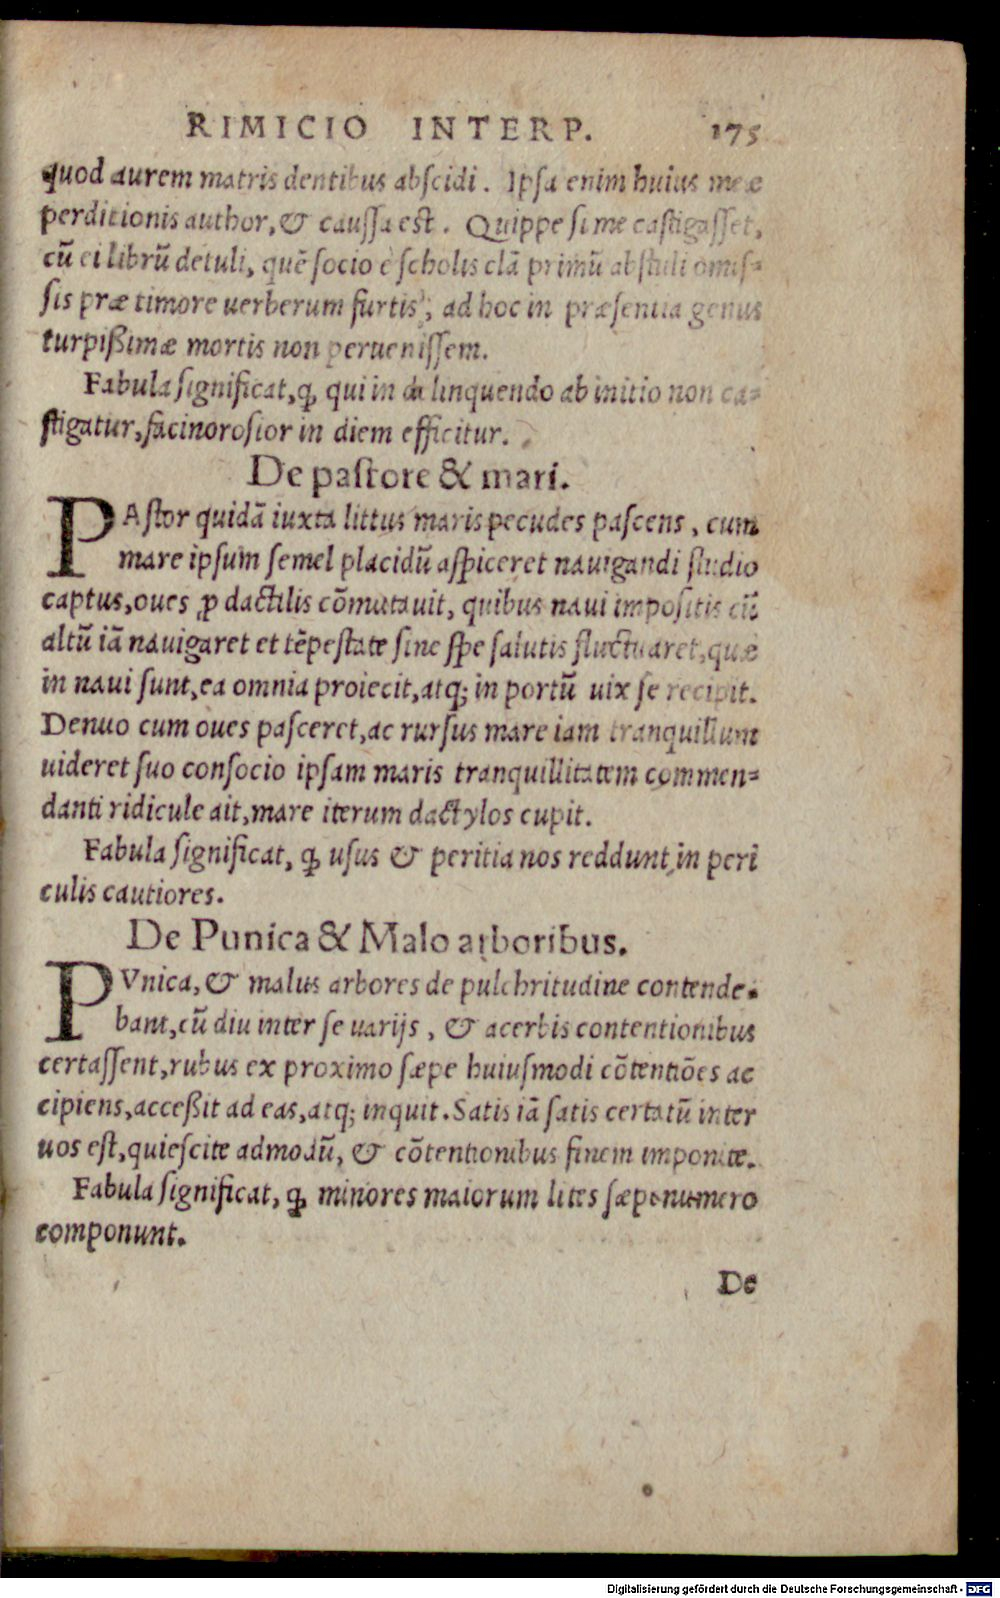 RIMICIO INTERP. 175
quod aurem matris dentibus abſcidi. Ipſa enim huius meæ
perditionis author, & cauſſa est. Quippe ſi me caſtigaſſet,
cū ei librū detuli, quē ſocio è ſcholis clā primū abſtuli omiſ=
ſis præ timore uerberum furtis, ad hoc in præſentia genus
turpißimæ mortis non peruenissem.
Fabula ſignificat, ꝙ qui in delinquendo ab initio non ca=
ſtigatur, facinoroſior in diem efficitur.
De paſtore & mari.
PAſtor quidā iuxta littus maris pecudes paſcens, cum
mare ipſum ſemel placidū aſpiceret nauigandi ſtudio
captus, oues ꝓ dactilis cōmutauit, quibus naui impoſitis cū
altū iā nauigaret et tēpestate ſine ſpe ſalutis fluctuaret, quæ
in naui ſunt, ea omnia proiecit, atq; in portū uix ſe recipit.
Denuo cum oues paſceret, ac rurſus mare iam tranquillum
uideret ſuo conſocio ipſam maris tranquillitatem commen=
danti ridicule ait, mare iterum dactylos cupit.
Fabula ſignificat, ꝙ uſus & peritia nos reddunt in peri
culis cautiores.
De Punica & Malo arboribus.
PVnica, & malus arbores de pulchritudine contende-
bant, cū diu inter ſe uarijs, & acerbis contentionibus
certaſſent, rubus ex proximo ſæpe huiuſmodi cōtentiōes ac
cipiens, acceßit ad eas, atq; inquit. Satis iā ſatis certatū inter
uos eſt, quieſcite admodū, & cōtentionibus finem imponite.
Fabula ſignificat, ꝙ minores maiorum lites ſæpenumero
componunt.
De
Digitalisierung gefördert durch die Deutsche Forschungsgemeinschaft - DFG